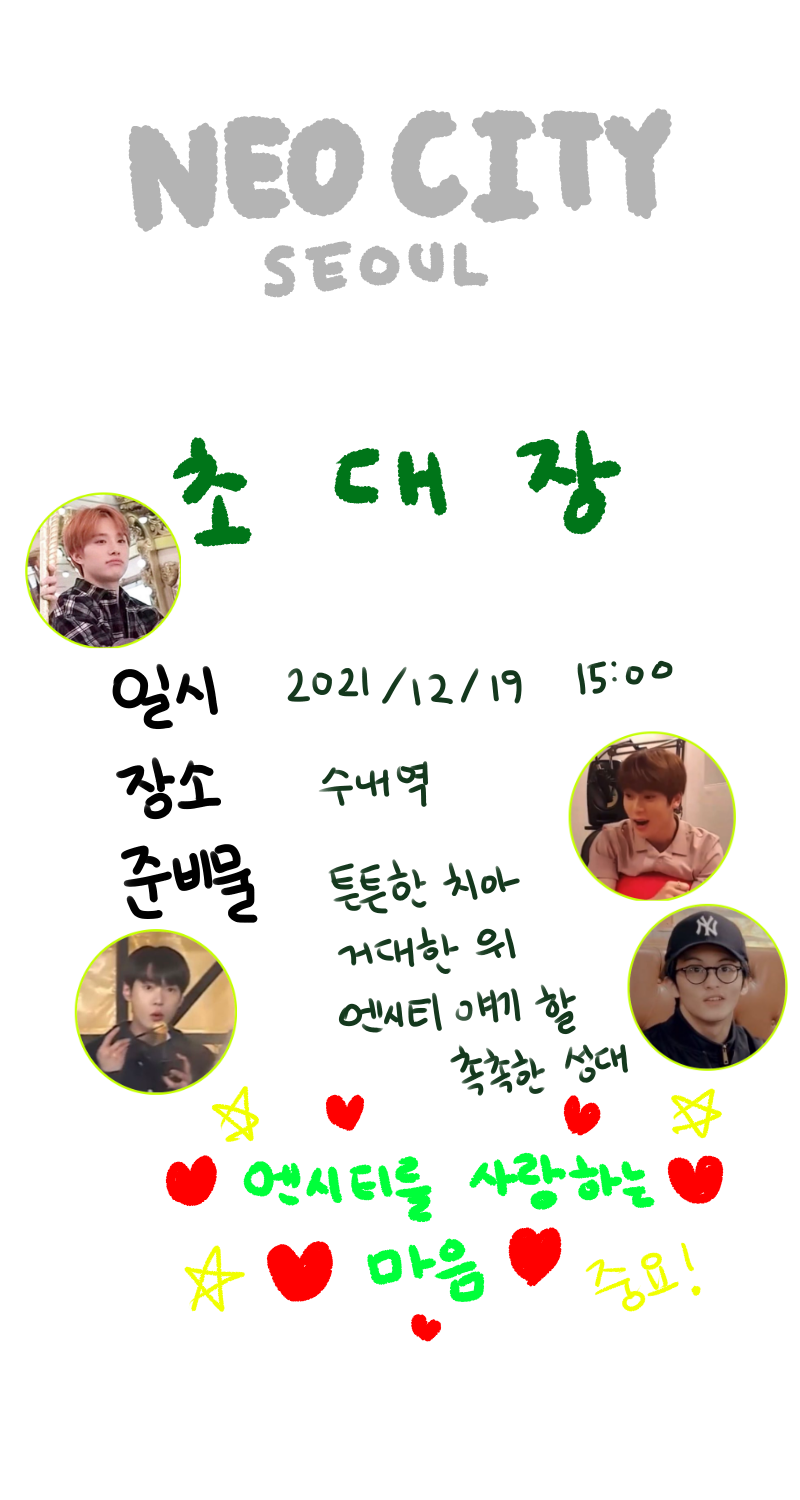 NEO CITY
SEOUL
초 대 장
일시 2021/12/19 15:00
장소 수내역
준비물 튼튼한 치아
거대한 위
엔시티 얘기 할
촉촉한 성대
엔시티를 사랑하는
마음 중요!
NY